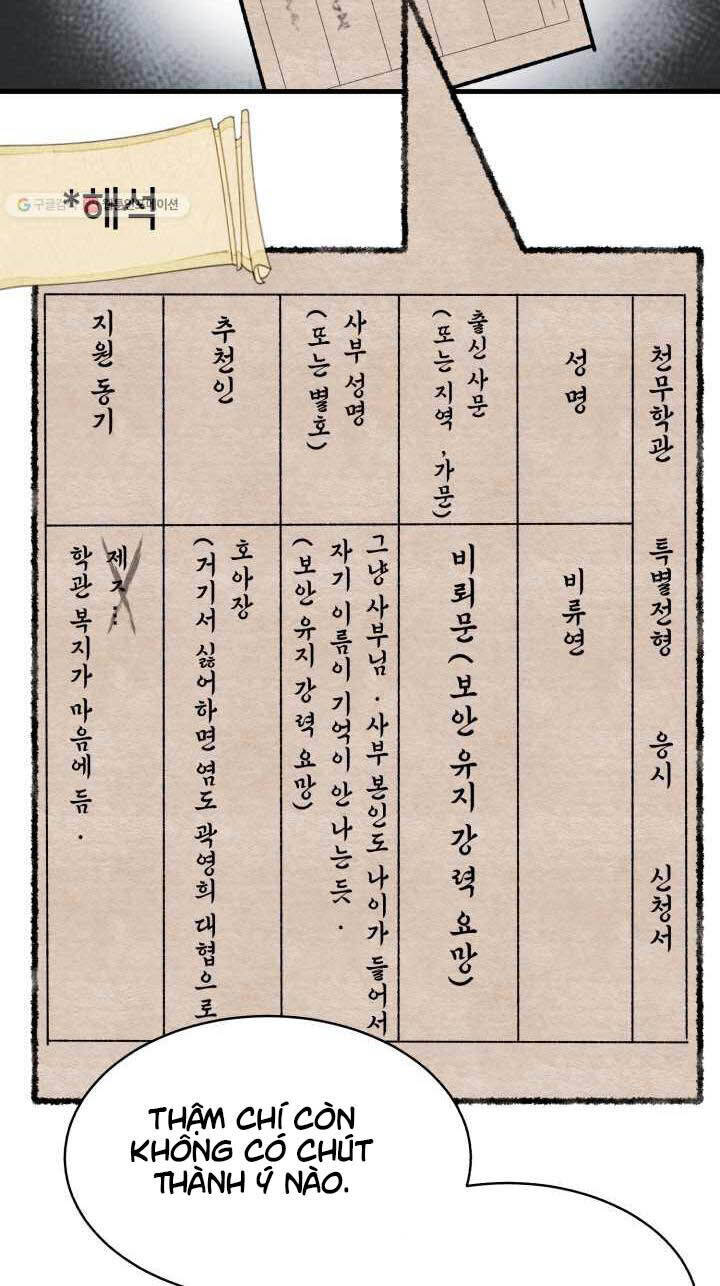 *해석
천무학관 특별전형 응시 신청서
성명
비류연
출신 사문
(또는 지역, 가문)
비뢰문(보안 유지 강력 요망)
사부 성명
(또는 별호)
그냥 사부님. 사부 본인도 나이가 들어서
자기 이름이 기억이 안 나는 듯.
(보안 유지 강력 요망)
추천인
호아장
(거기서 싫어하면 염도 곽영희 대협으로
지원 동기
제
학관 복지가 마음에 듬.
THẬM CHÍ CÒN
KHÔNG CÓ CHÚT
THÀNH Ý NÀO.